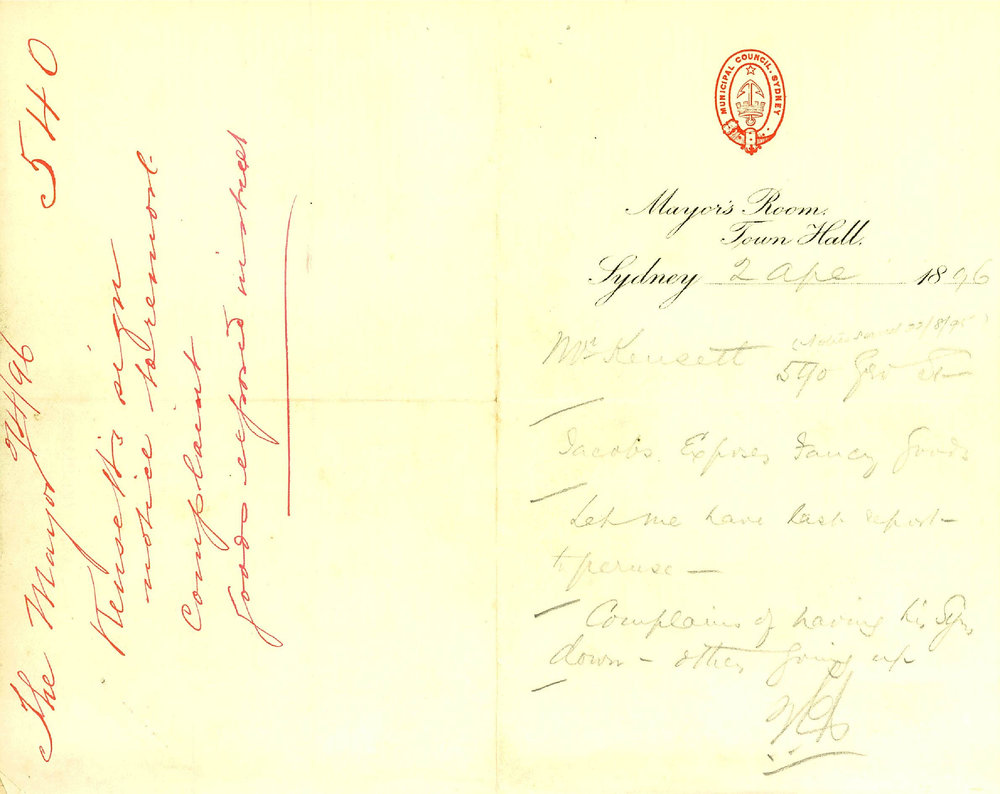 540
The Mayor 2/4/96
Kensett's sign
notice to remove
Complaint
goods exposed in street
MUNICIPAL COUNCIL. SYDNEY
Mayor's Room,
Town Hall.
Sydney 2 Apl 1896
(Notice 22/8/95)
Mr Kensett 570 Geo St
Jacobs. Exposes Fancy Goods
Let me have last report
to peruse —
Complains of having his Sign
down — others going up